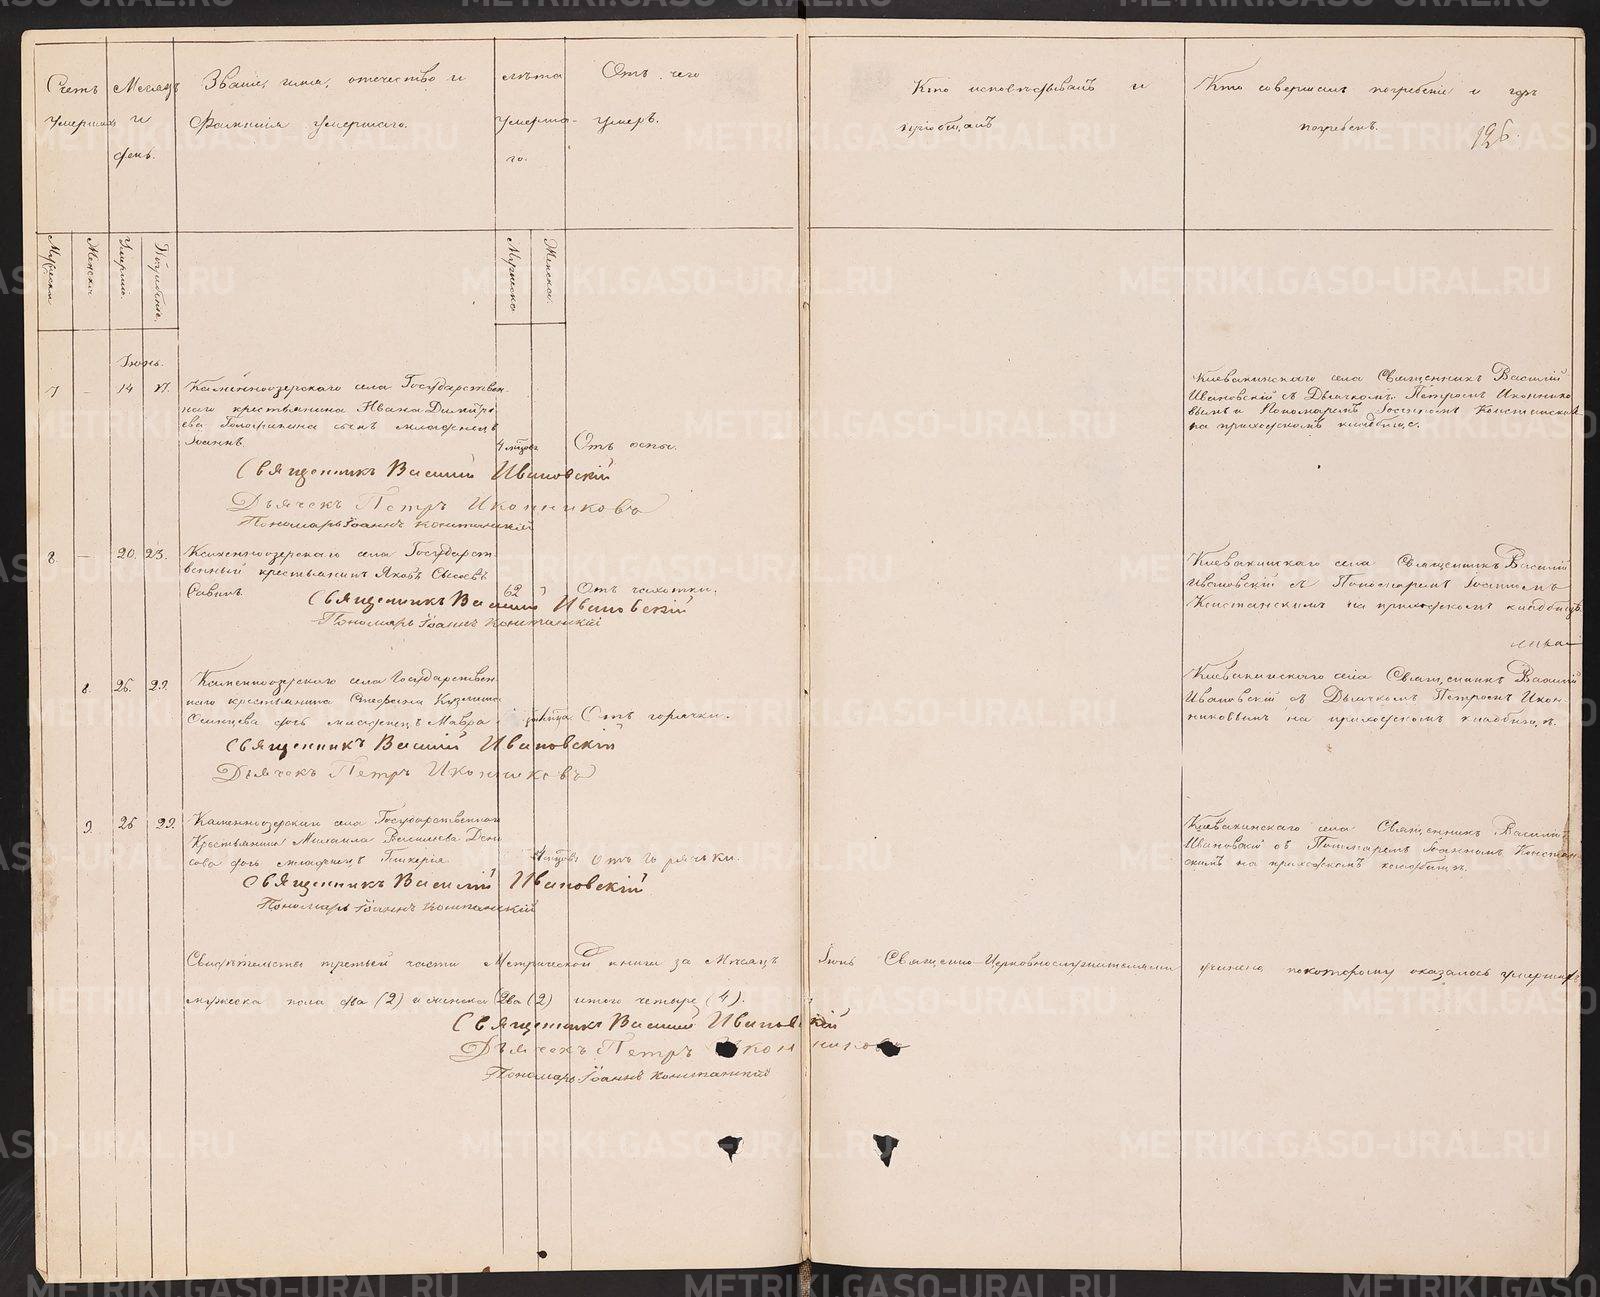 Счетъ умершихъ
Месяцъ и день.
Званіе, имя, отечество и
Фамилія умершаго.
лѣта
умерша-
го.
Отъ чего
умеръ.
Кто исповѣдывалъ и
пріобщалъ
Кто совершалъ погребеніе и гдѣ
погребенъ.
126.
Мужеска
Женска
Умерших.
Погребенія.
Мужеска
Женска.
Іюнь.
7 – 14 17. Каменноозерскаго села Государствен-
наго крестьянина Ивана Димитрі-
ева сынъ младенецъ
Іоаннъ. 4 мѣсяц. Отъ оспы.
Клевакинскаго села Священникъ Василій
Ивановскій съ Дьячкомъ Петромъ Иконнико
вымъ и Пономаремъ Іоанномъ
на приходскомъ кладбищѣ.
Священникъ Василий Ивановскій
Дьячекъ Петръ Иконниковъ
Пономарь Іоаннъ
8. – 20. 23. Каменноозерскаго села Государст-
венный крестьянинъ Яковъ
Савинъ. 62 Отъ чахотки.
Клевакинскаго села Священникъ Василій
Ивановскій съ Пономаремъ Іоанномъ
на приходскомъ кладбищѣ
Священникъ Василий Ивановскій
Пономарь Іоаннъ
8. 26. 29. Каменноозерскаго села Государствен-
наго крестьянина Стефана Кузмина
дочь младенецъ Мавра Отъ горячки.
Клевакинскаго села Священникъ Василій
Ивановскій съ Дьячкомъ Петромъ Икон-
никовымъ на приходскомъ кладбищѣ.
Священникъ Василий Ивановскій
Дьячекъ Петръ Иконниковъ
9. 26 29. Каменноозерскаго села Государственнаго
Крестьянина Михаила Васильева Дени
сова дочь младенецъ Гликерія Отъ горячки.
Клевакинскаго села Священникъ Василій
Ивановскій съ Пономаремъ Іоанномъ
на приходскомъ кладбищѣ.
Священникъ Василий Ивановскій
Пономарь Іоаннъ
Свидѣтельство третьей части Метрической книги за Мѣсяцъ Іюнь Священно-Церковнослужителями учинено по которому оказалось умершихъ
мужеска пола два (2) и женска два (2) итого четыре (4).
Священникъ Василий Ивановскій
Дьячекъ Петръ Иконниковъ
Пономарь Іоаннъ
METRIKI.GASO-URAL.RU